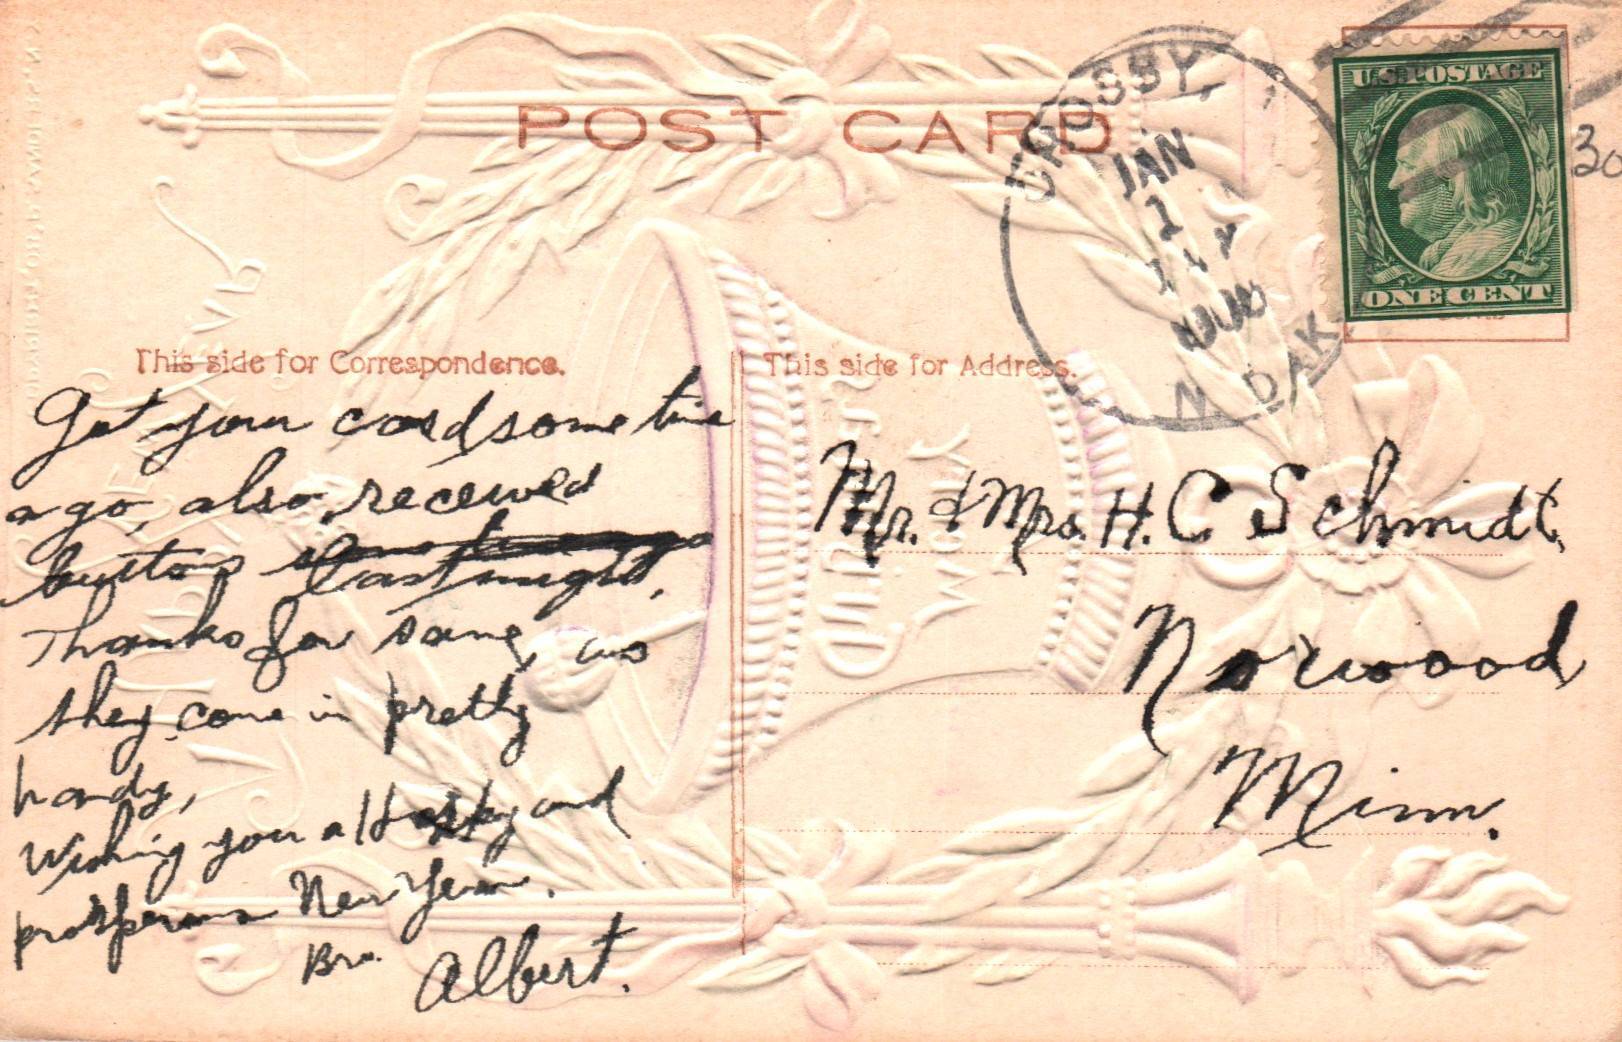 POST CARD
CROSBY,
JAN
2
N. DAK.
U.S. POSTAGE
ONE CENT
30
This side for Correspondence.
This side for Address.
Got your card some time
ago, also received
buttons last night,
Thanks for same, as
they come in pretty
handy,
Wishing you a Happy and
prosperous New Year.
Bro. Albert.
Mr. & Mrs. H. C Schmidt,
Norwood
Minn.